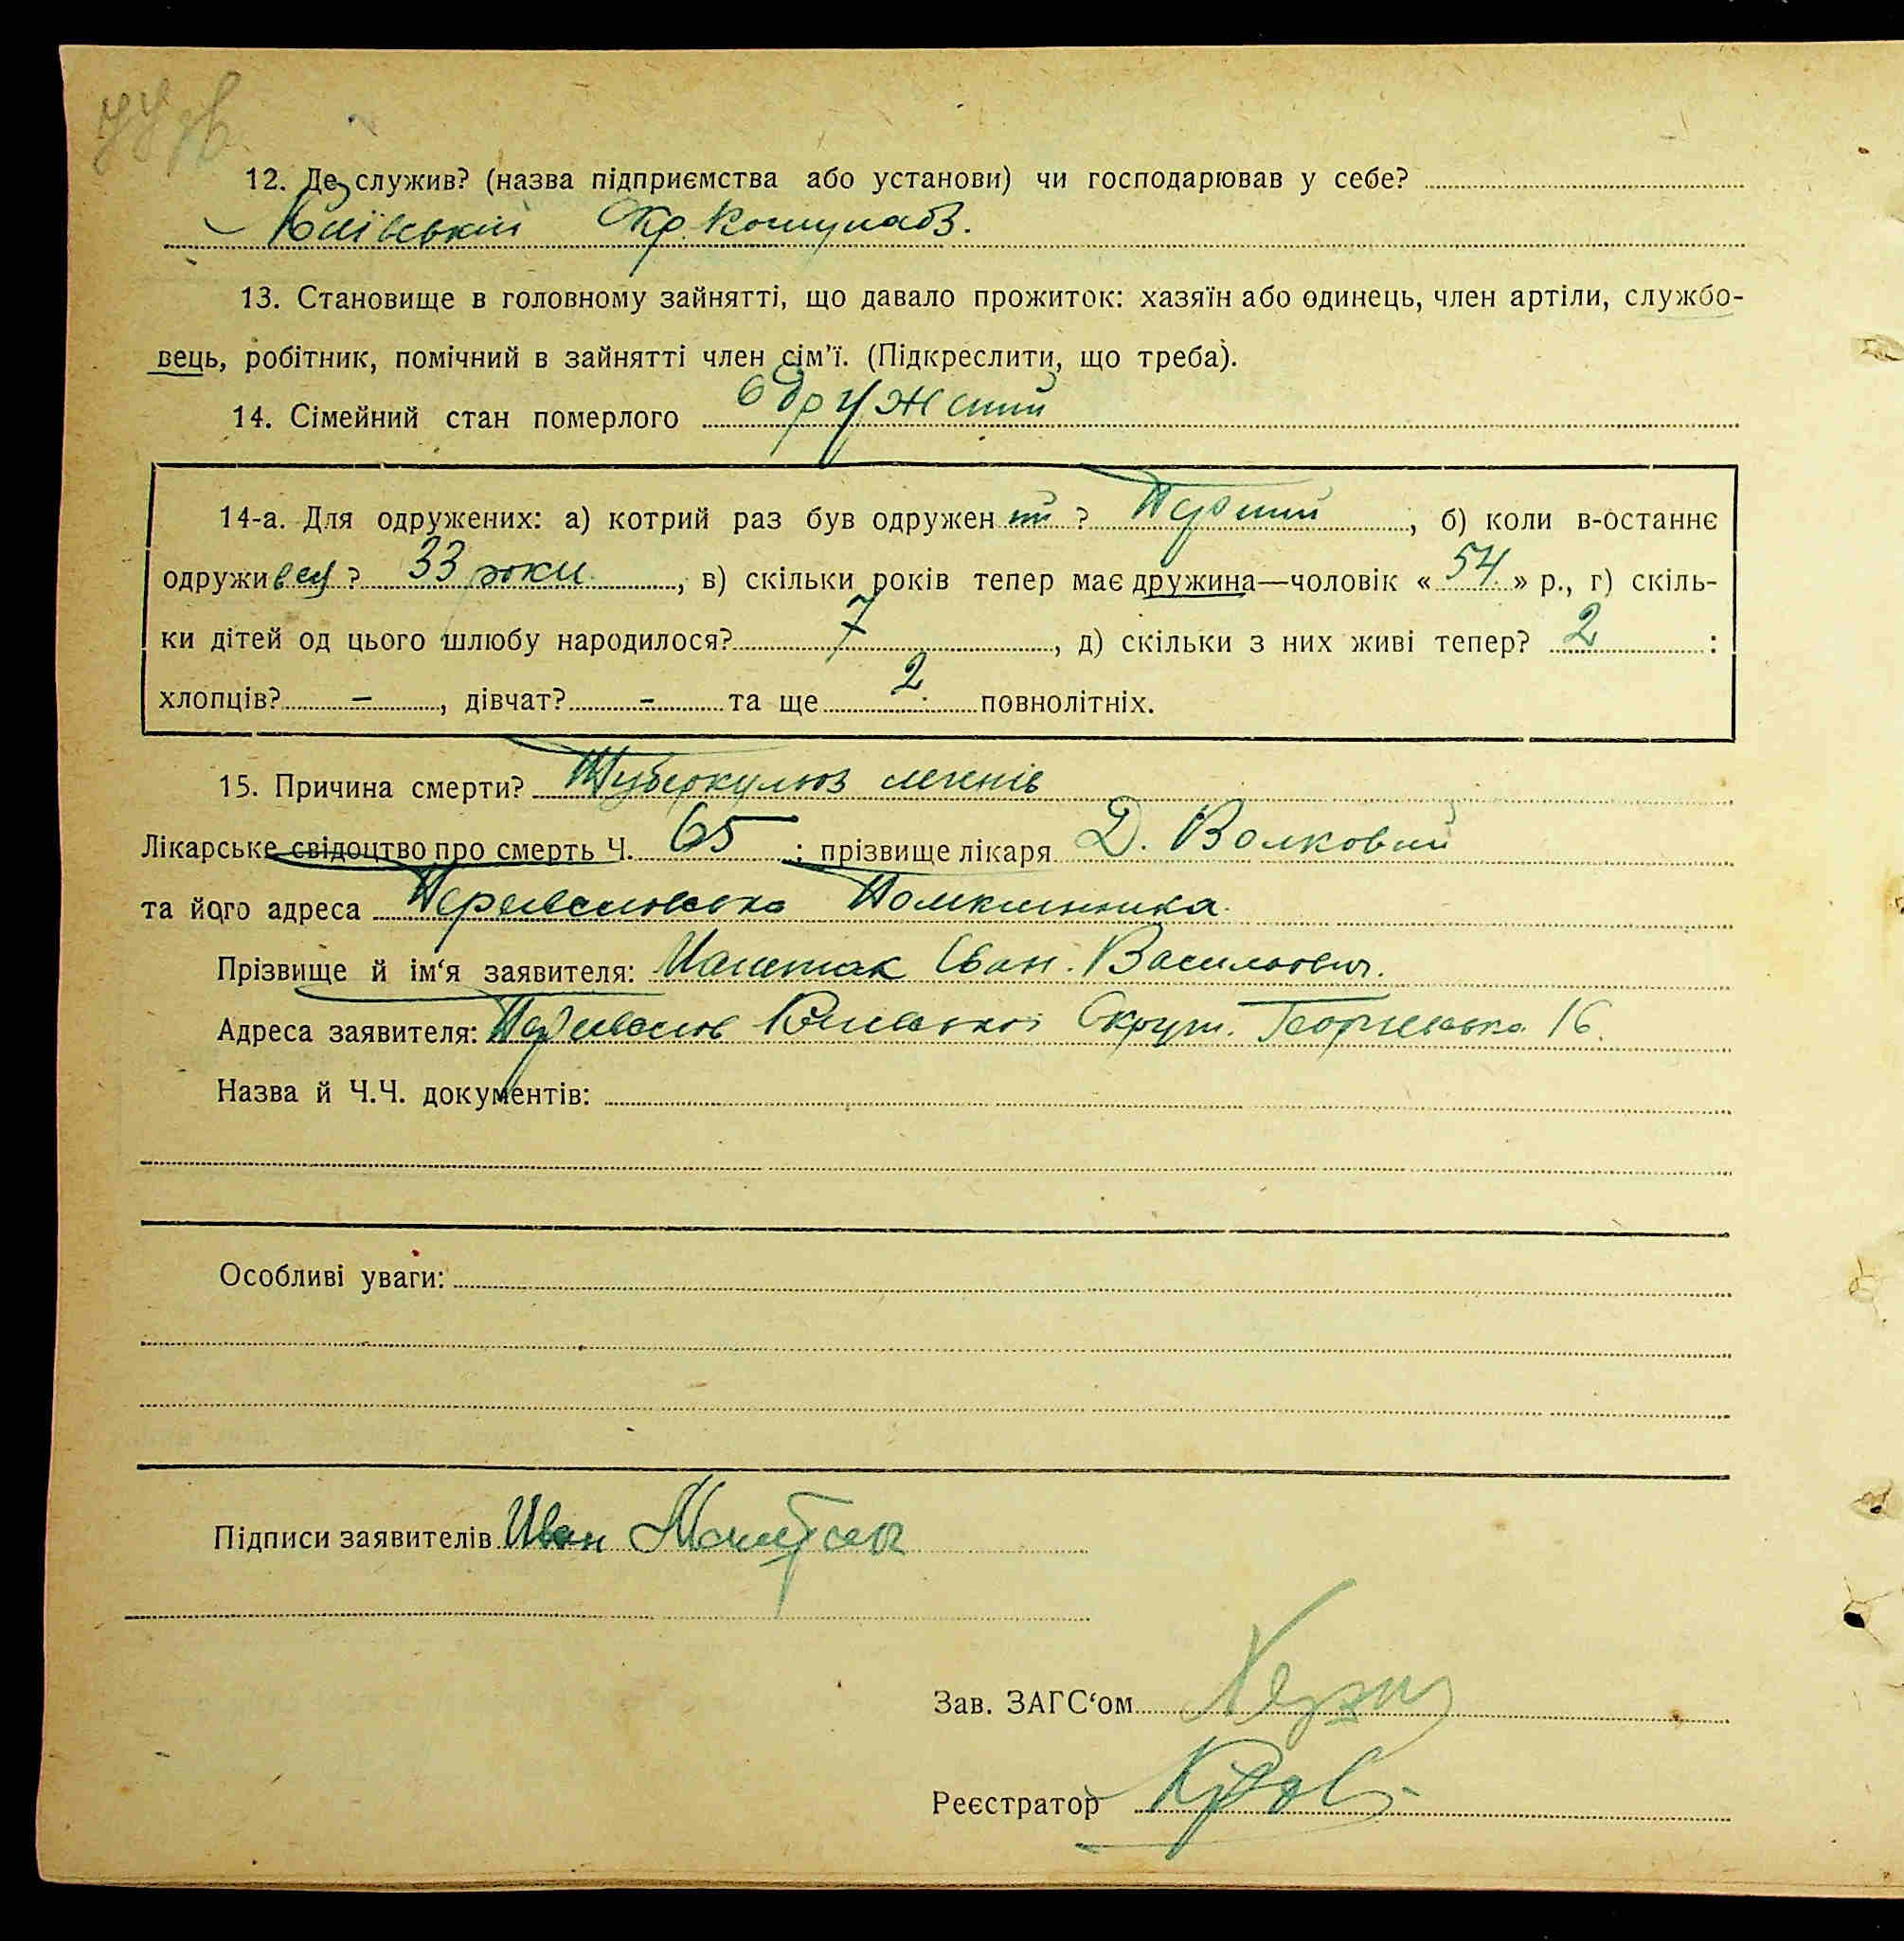 12. Де служив? (назва підприємства або установи) чи господарював у себе?
Київський Окр. Комунавз.
13. Становище в головному зайнятті, що давало прожиток: хазяїн або одинець, член артіли, службо-
вець, робітник, помічний в зайнятті член сім'ї. (Підкреслити, що треба).
14. Сімейний стан померлого одружений
14-а. Для одружених: а) котрий раз був одружен ий ? Перший, б) коли в-останнє
одруживсь? 33 роки, в) скільки років тепер має дружина—чоловік « 54 » р., г) скіль-
ки дітей од цього шлюбу народилося? 7, д) скільки з них живі тепер? 2 :
хлопців? –, дівчат? – та ще 2 повнолітніх.
15. Причина смерти? Туберкульоз легенів
Лікарське свідоцтво про смерть Ч. 65 ; прізвище лікаря Д. Волковий
та його адреса Переяславська
Прізвище й ім'я заявителя: Іван Васильович.
Адреса заявителя: Переяслов Київської Округи. 16.
Назва й Ч.Ч. документів:
Особливі уваги:
Підписи заявителів Иван
Зав. ЗАГС'ом
Реєстратор